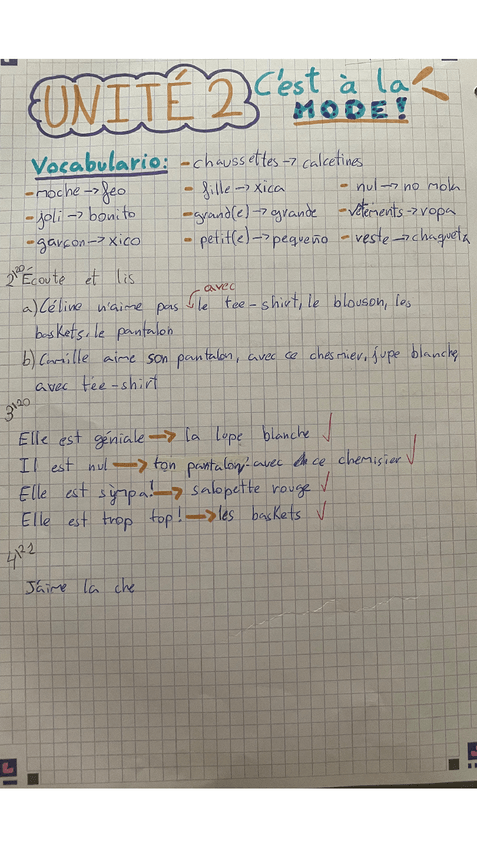 UNITÉ 2 C'est à la
MODE!
Vocabulario: - chaussettes → calcetines
- moche → feo - fille → xica - nul → no mola
- joli → bonito - grand(e) → grande - vêtements → ropa
- garcon → xico - petit(e) → pequeño - veste → chaqueta
2 120 Écoute et lis
avec
a) Céline n'aime pas le tee-shirt, le blouson, les
baskets, le pantalon
b) Camille aime son pantalon, avec ce chesmier, jupe blanche,
avec tee-shirt
3 120
Elle est géniale → la lupe blanche
Il est nul → ton pantalon avec ce chemisier
Elle est sympa! → salopette rouge
Elle est trop top! → les baskets
4 122
J'aime la che